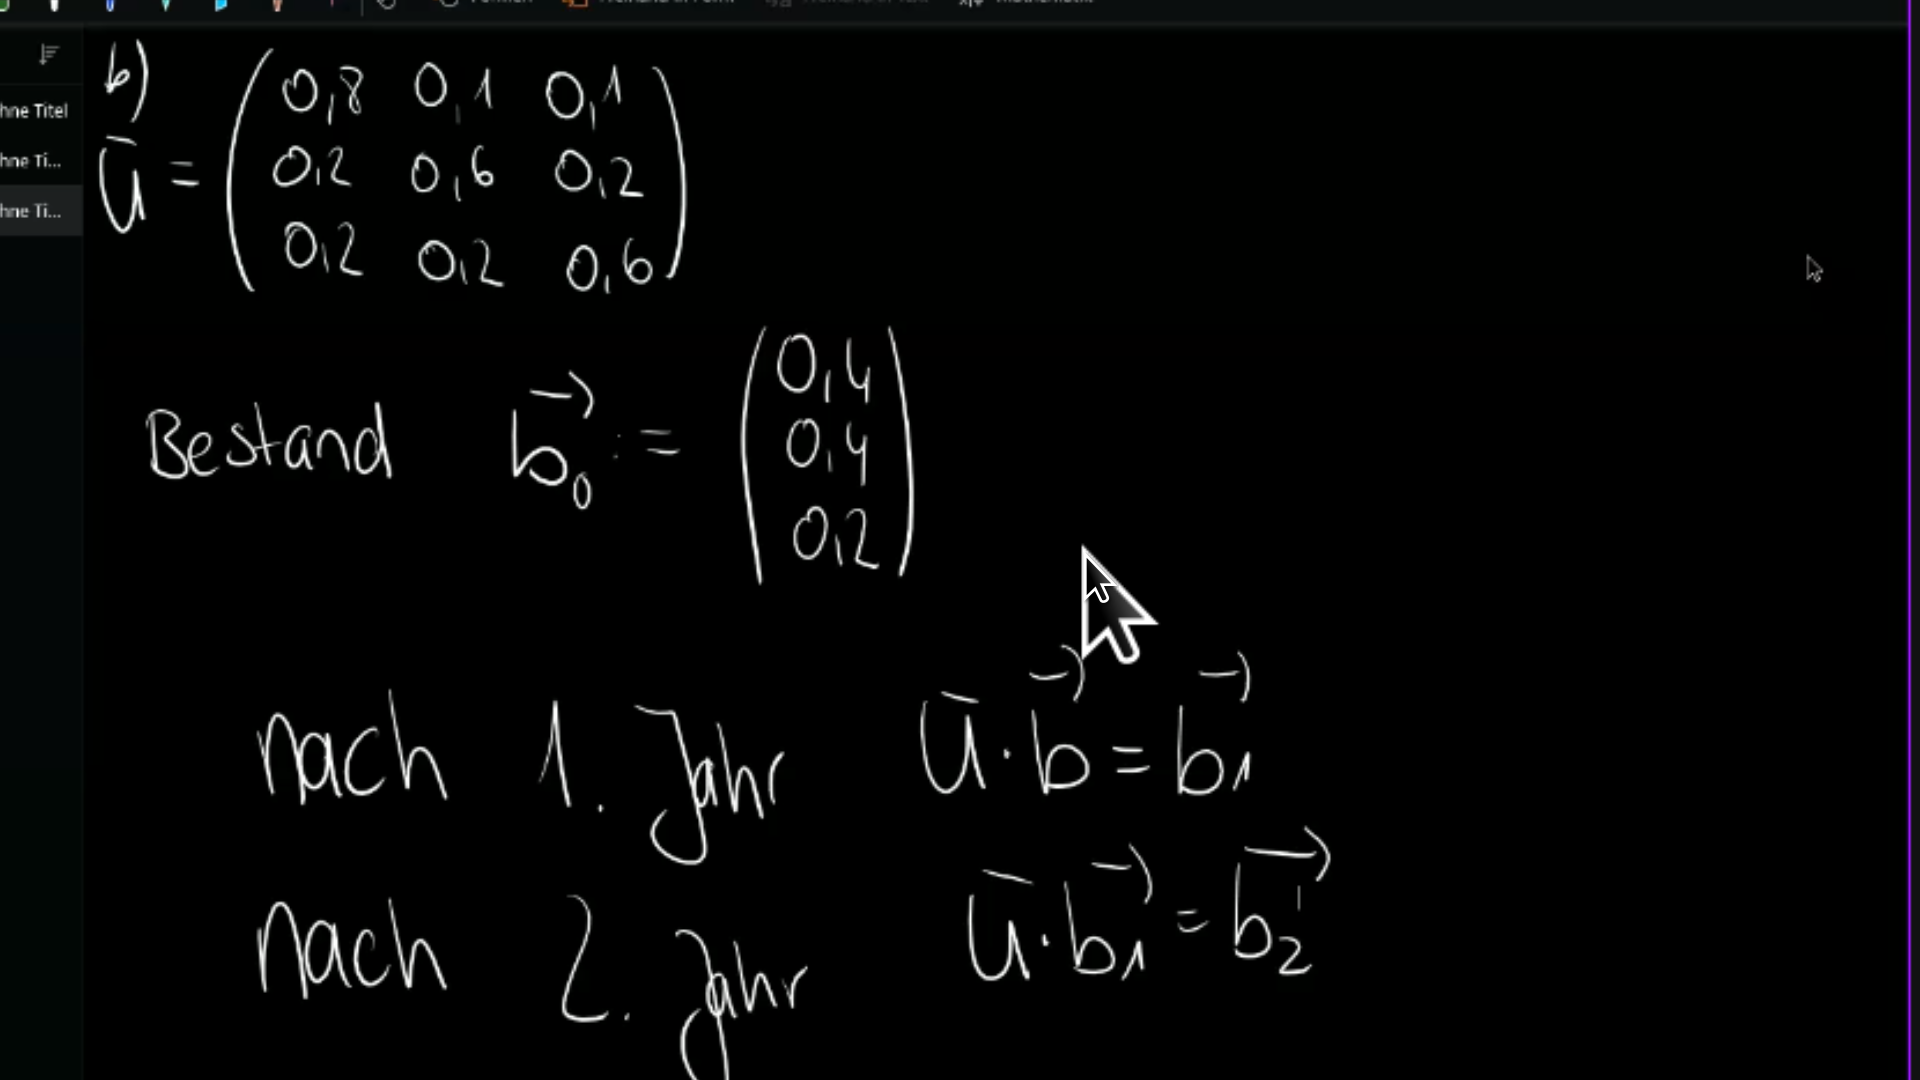 hne Titel
hne Ti...
hne Ti...
b)
Ū = ( 0,8 0,1 0,1
0,2 0,6 0,2
0,2 0,2 0,6 )
Bestand b⃗₀ := ( 0,4
0,4
0,2 )
nach 1. Jahr Ū · b⃗ = b⃗₁
nach 2. Jahr Ū · b⃗₁ = b⃗₂